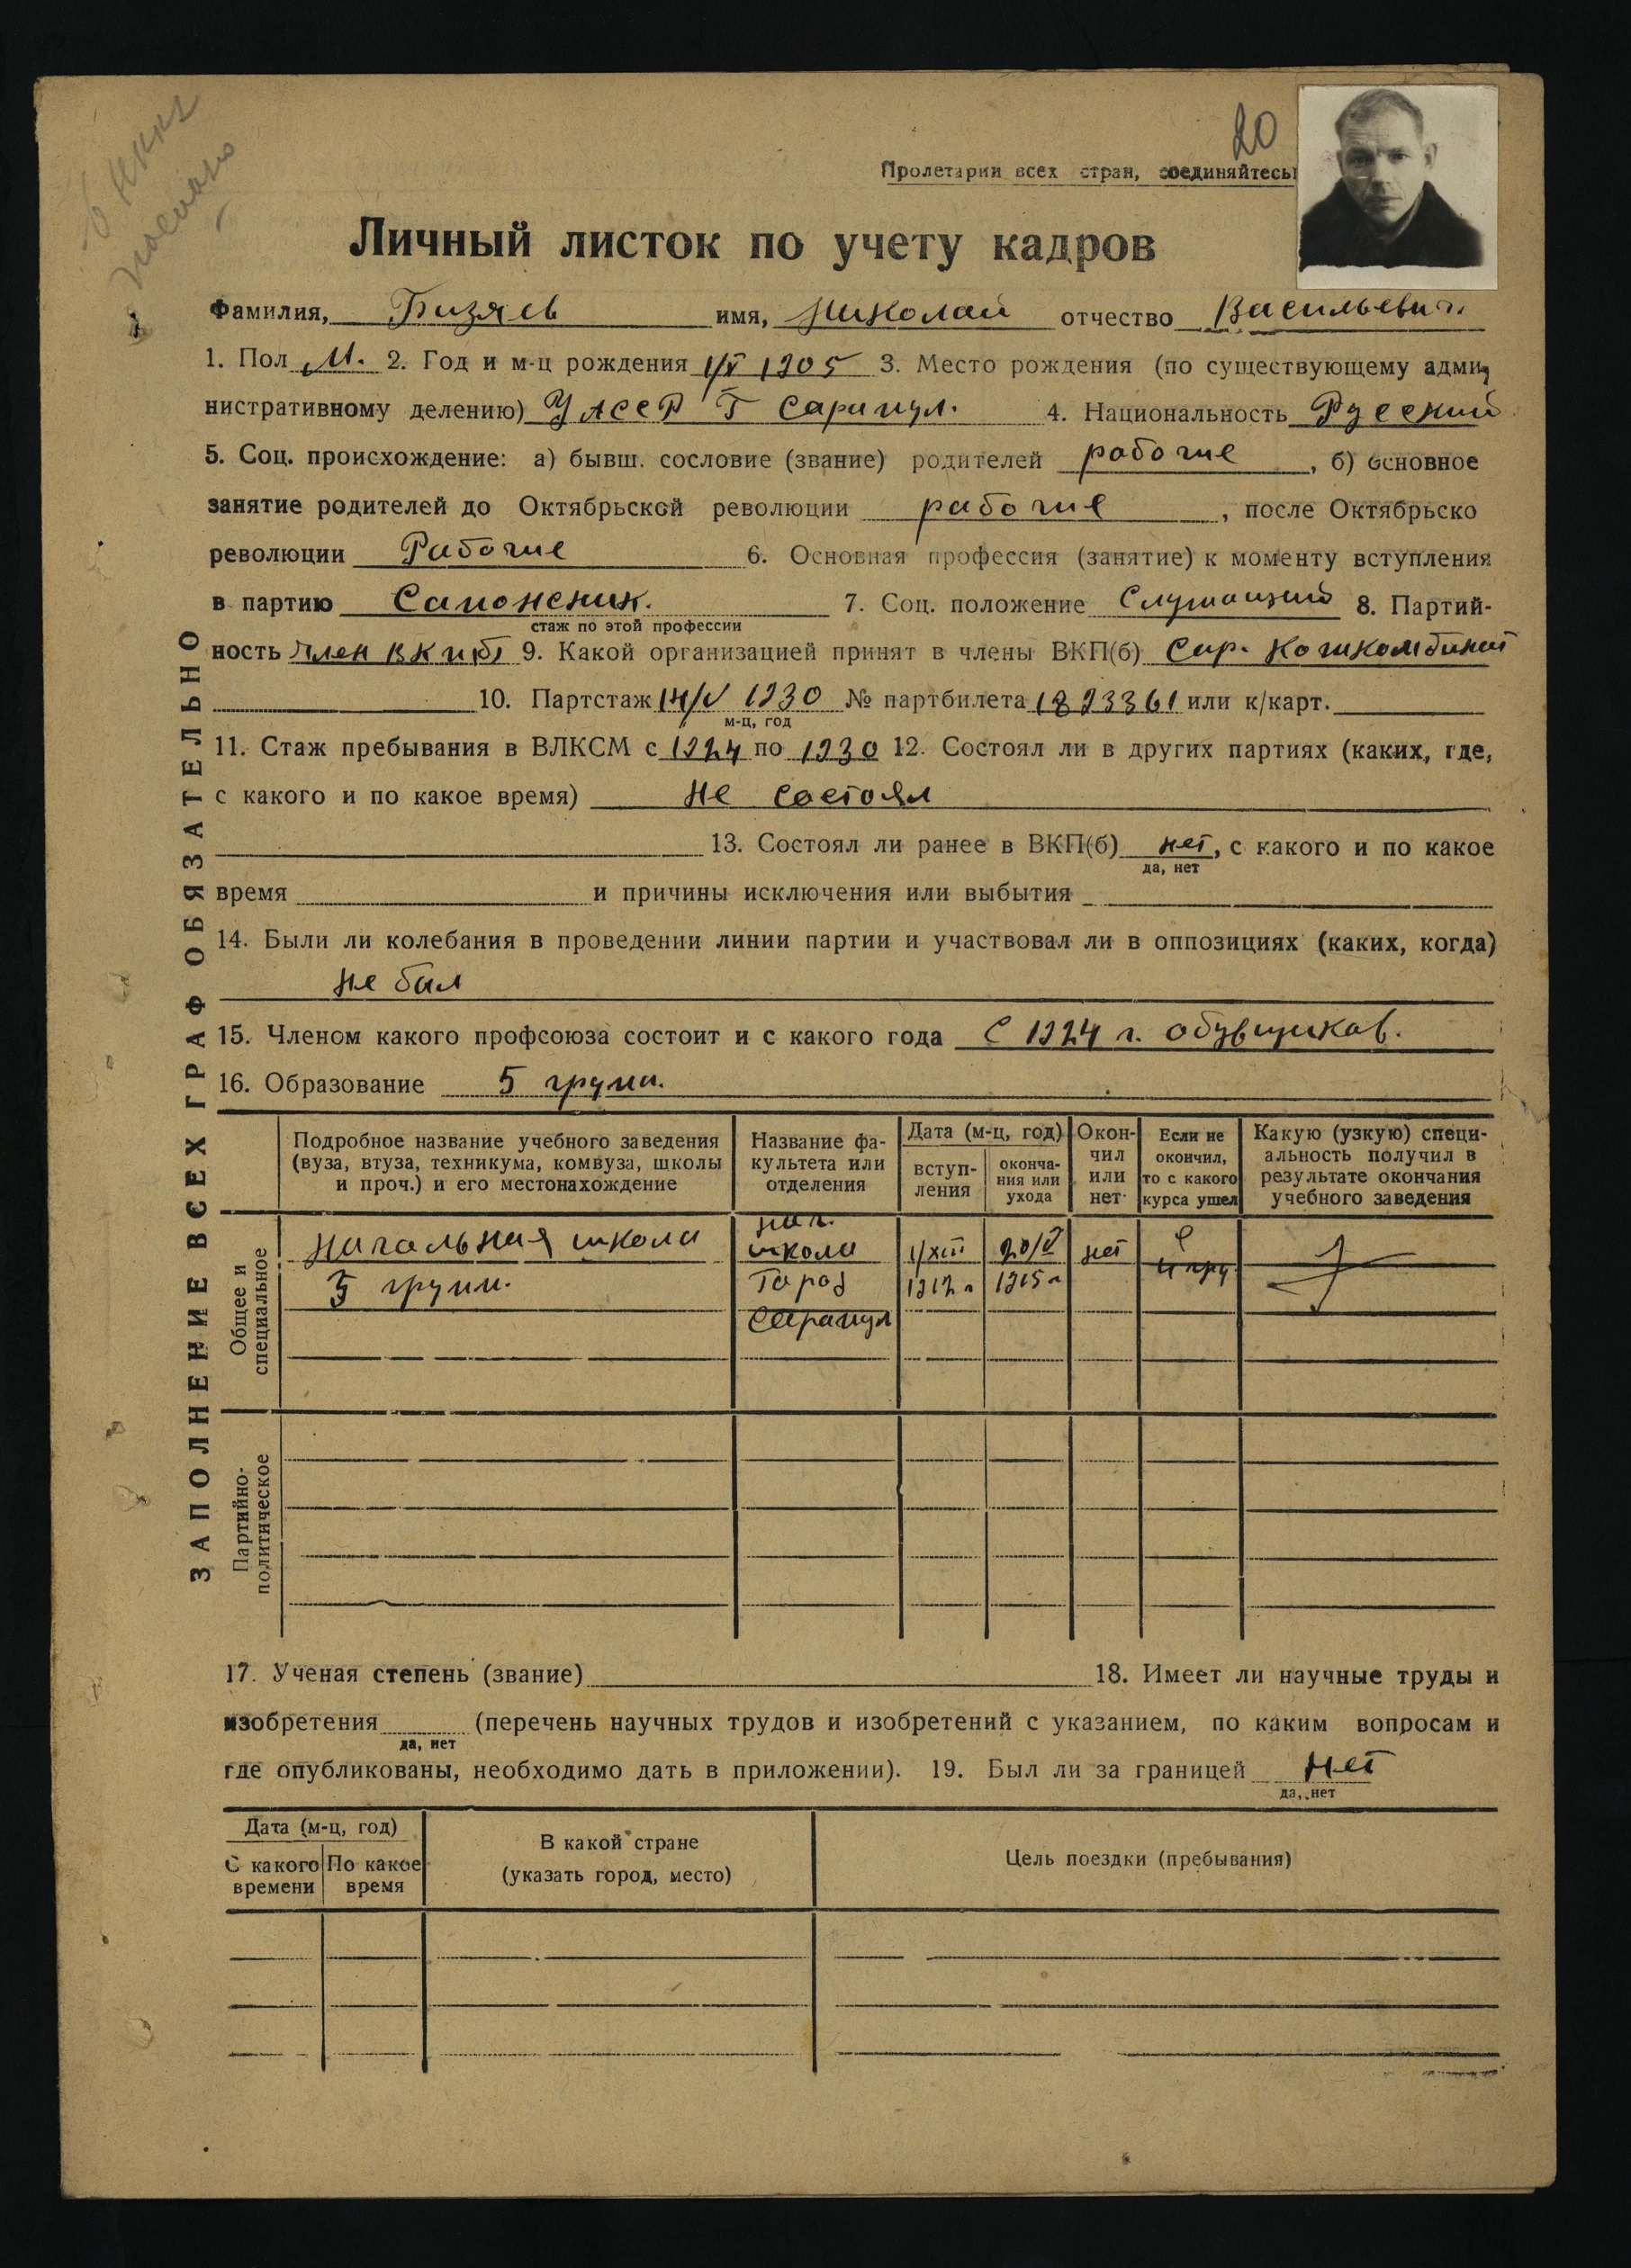 20
Пролетарии всех стран, соединяйтесь!
Личный листок по учету кадров
Фамилия, Бизяев имя, Николай отчество Васильевич
1. Пол М. 2. Год и м-ц рождения 1/V 1905 3. Место рождения (по существующему адми-
нистративному делению) УАССР Г Сарапул. 4. Национальность Русский
5. Соц. происхождение: а) бывш. сословие (звание) родителей рабочие, б) основное
занятие родителей до Октябрьской революции рабочие, после Октябрьско
революции Рабочие 6. Основная профессия (занятие) к моменту вступления
в партию Сапожник. 7. Соц. положение Служащий 8. Партий-
стаж по этой профессии
ность член ВКП(б) 9. Какой организацией принят в члены ВКП(б) Сар. Кожкомбинат
10. Партстаж 14/V 1930 № партбилета 1893361 или к/карт.
м-ц, год
11. Стаж пребывания в ВЛКСМ с 1924 по 1930 12. Состоял ли в других партиях (каких, где,
с какого и по какое время) Не состоял
13. Состоял ли ранее в ВКП(б) нет, с какого и по какое
да, нет
время и причины исключения или выбытия
14. Были ли колебания в проведении линии партии и участвовал ли в оппозициях (каких, когда)
не был
15. Членом какого профсоюза состоит и с какого года С 1924 г. обувщиков.
16. Образование 5 групп.
ЗАПОЛНЕНИЕ ВСЕХ ГРАФ ОБЯЗАТЕЛЬНО
Подробное название учебного заведения (вуза, втуза, техникума, комвуза, школы и проч.) и его местонахождение
Название факультета или отделения
Дата (м-ц, год)
вступ-ления
оконча-ния или ухода
Окон-чил или нет
Если не окончил, то с какого курса ушел
Какую (узкую) специ-альность получил в результате окончания учебного заведения
Общее и специальное
начальная школа
5 групп.
нач.
школа
Город
Сарапул
1/XII
1912 г
20/V
1915 г
нет
Партийно-политическое
17. Ученая степень (звание) 18. Имеет ли научные труды и
изобретения (перечень научных трудов и изобретений с указанием, по каким вопросам и
да, нет
где опубликованы, необходимо дать в приложении). 19. Был ли за границей Нет
да, нет
Дата (м-ц, год)
С какого времени
По какое время
В какой стране
(указать город, место)
Цель поездки (пребывания)